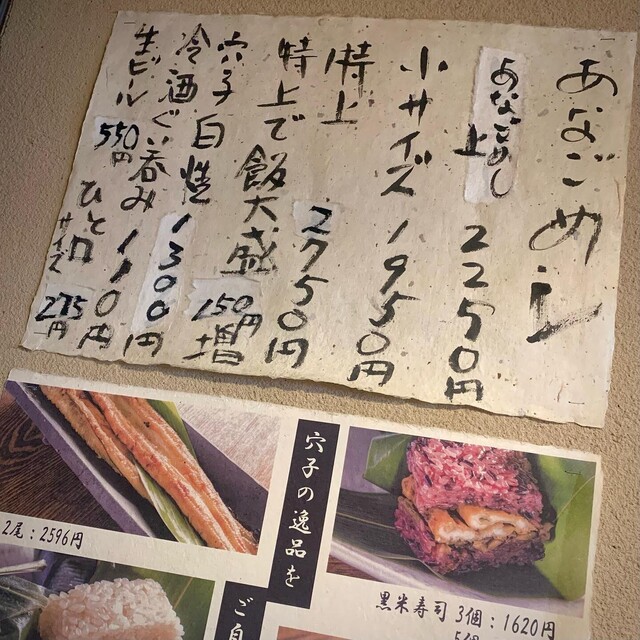 あなごめし
あなごめし上 2250円
小サイズ 1950円
特上 2750円
特上で飯大盛 150円増
穴子白焼 1300円
冷酒ぐい呑み 110円
生ビール 550円
ひと口サイズ 275円
穴子の逸品を
ご自
2尾：2596円
黒米寿司 3個：1620円